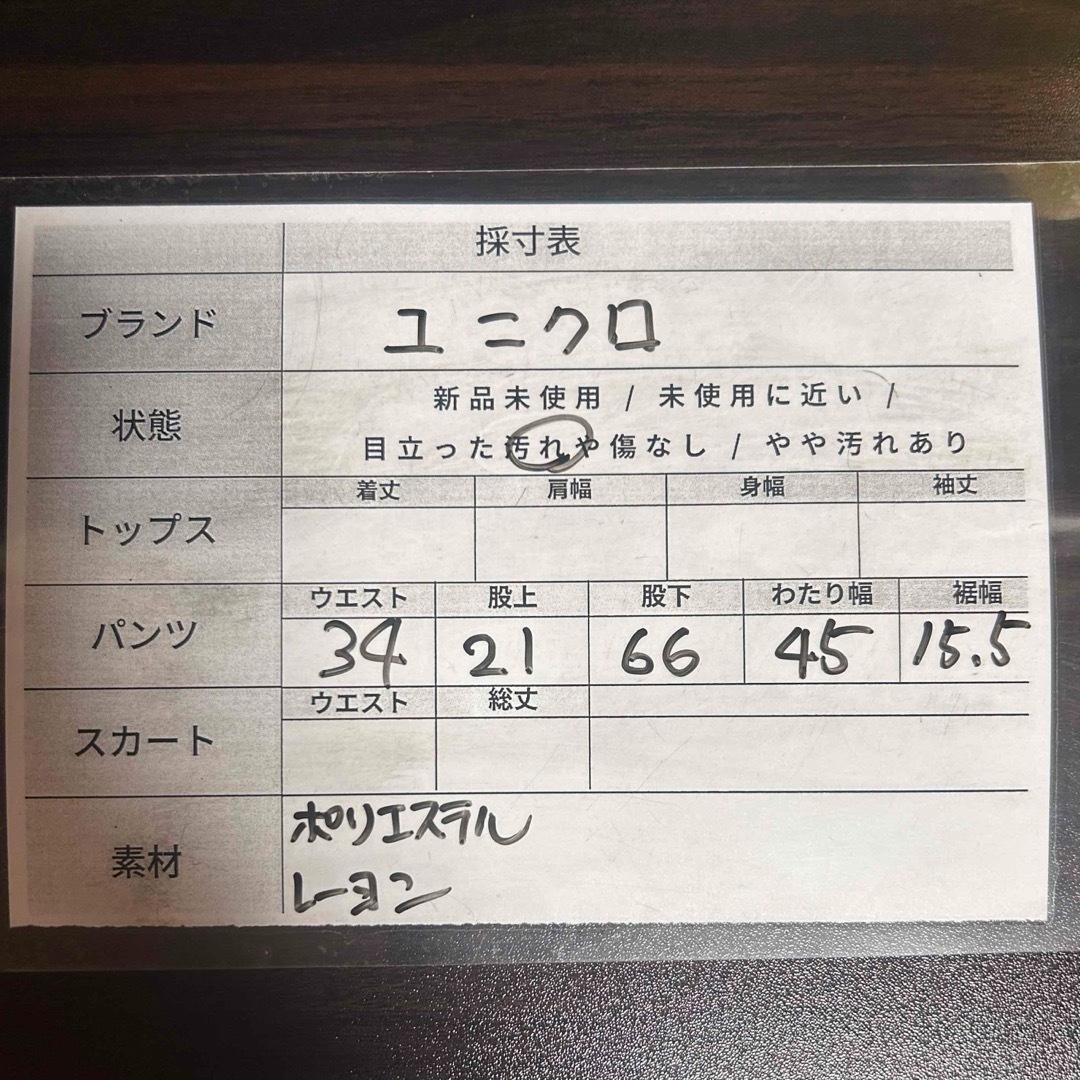 採寸表
ブランド ユニクロ
新品未使用 / 未使用に近い /
状態
目立った汚れや傷なし / やや汚れあり
着丈 肩幅 身幅 袖丈
トップス
ウエスト 股上 股下 わたり幅 裾幅
パンツ 34 21 66 45 15.5
ウエスト 総丈
スカート
ポリエステル
素材
レーヨン